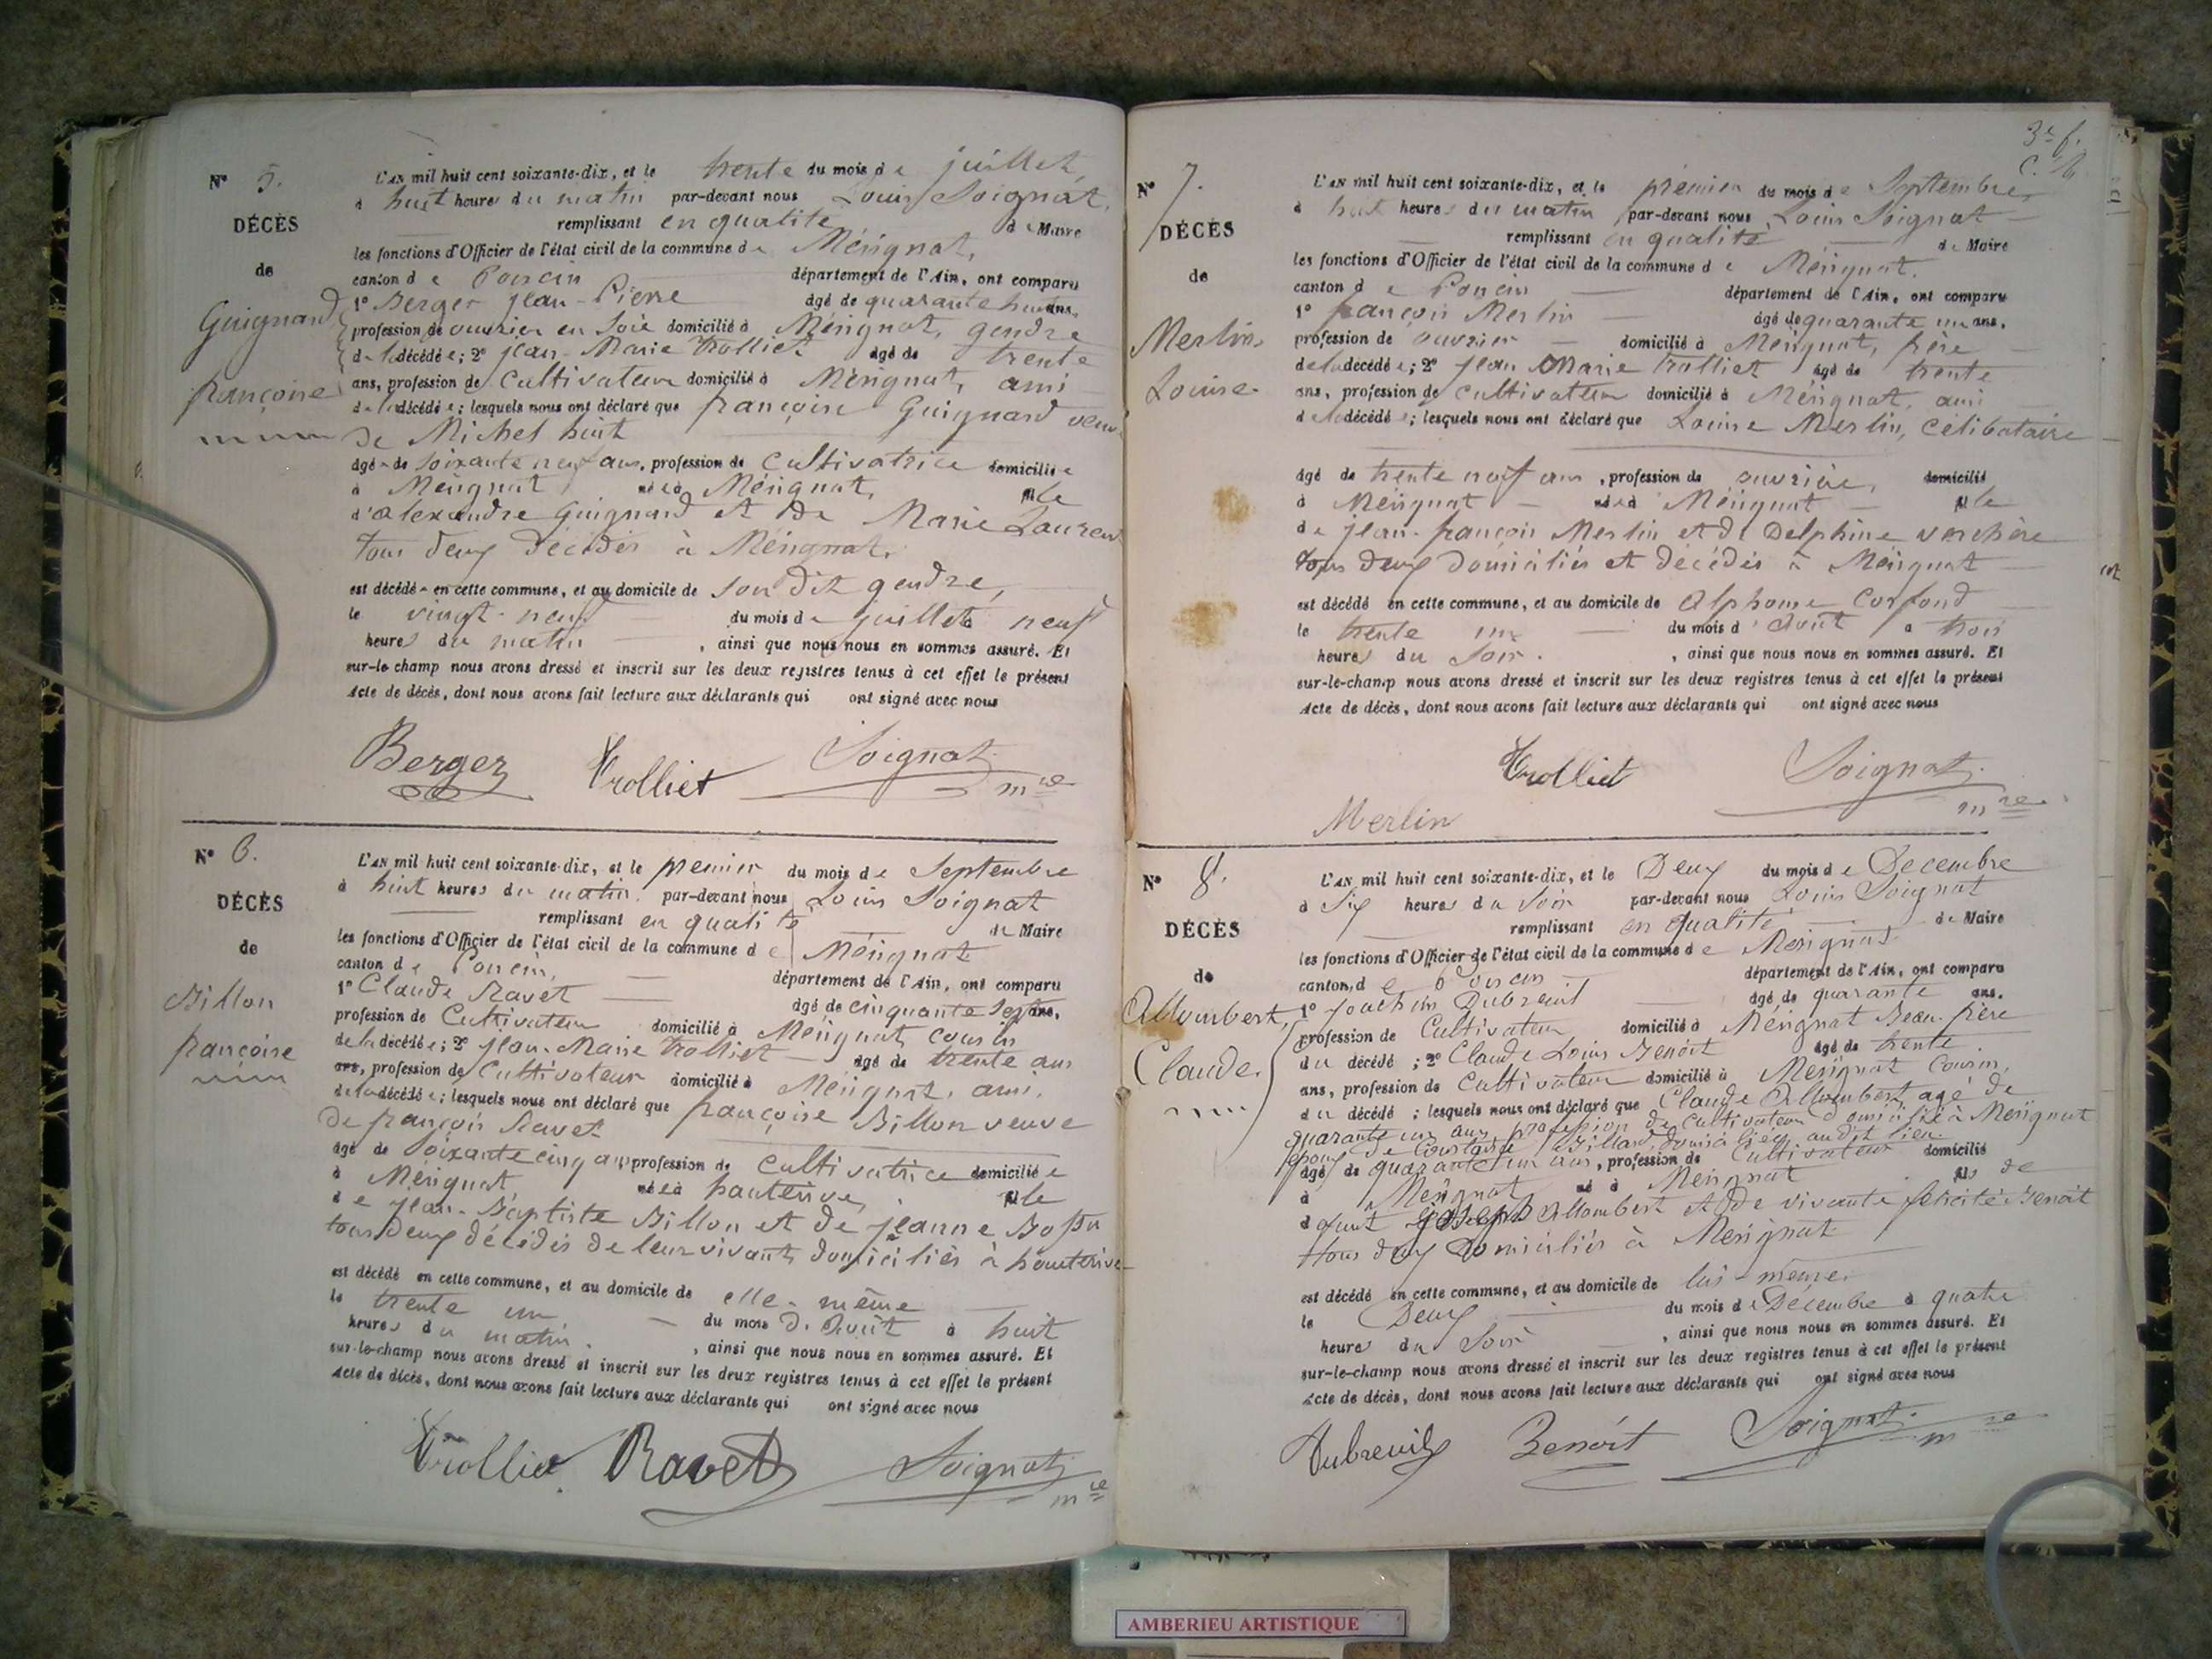 N° 5.
DÉCÈS
de
Guignard
françoise
L'AN mil huit cent soixante-dix, et le trente du mois de juillet,
à huit heures du matin par-devant nous Louis Soignat,
remplissant en qualité de Maire
les fonctions d'Officier de l'état civil de la commune de Mérignat,
canton de Poncin département de l'Ain, ont comparu
1° Berger Jean-Pierre âgé de quarante huit ans,
profession de ouvrier en soie domicilié à Mérignat, gendre
de la décédée; 2° Jean-Marie Trolliet âgé de trente
ans, profession de Cultivateur domicilié à Mérignat, ami
de la décédée; lesquels nous ont déclaré que françoise Guignard veuve
de Michel
âgée de soixante neuf ans, profession de Cultivatrice domiciliée
à Mérignat née à Mérignat, fille
d'alexandre Guignard et de Marie Laurent
tous deux décédés à Mérignat.
est décédée en cette commune, et au domicile de son dit gendre,
le vingt-neuf du mois de juillet à neuf
heures du matin, ainsi que nous nous en sommes assuré. Et
sur-le-champ nous avons dressé et inscrit sur les deux registres tenus à cet effet le présent
Acte de décès, dont nous avons fait lecture aux déclarants qui ont signé avec nous
Berger Trolliet Soignat
mre
N° 6.
DÉCÈS
de
Billon
françoise
L'AN mil huit cent soixante-dix, et le premier du mois de Septembre
à huit heures du matin par-devant nous Louis Soignat
remplissant en qualité de Maire
les fonctions d'Officier de l'état civil de la commune de Mérignat
canton de Poncin, département de l'Ain, ont comparu
1° Claude Ravet âgé de cinquante sept ans,
profession de Cultivateur domicilié à Mérignat, cousin
de la décédée; 2° Jean-Marie Trolliet âgé de trente ans
ans, profession de Cultivateur domicilié à Mérignat, ami,
de la décédée; lesquels nous ont déclaré que françoise Billon veuve
de françois Ravet
âgé de soixante cinq ans profession de Cultivatrice domiciliée
à Mérignat née à hauterive, fille
de Jean-Baptiste Billon et de jeanne
tous deux décédés de leur vivant domiciliés à hauterive
est décédé en cette commune, et au domicile de elle-même
le trente un du mois d'Août à huit
heures du matin, ainsi que nous nous en sommes assuré. Et
sur-le-champ nous avons dressé et inscrit sur les deux registres tenus à cet effet le présent
Acte de décès, dont nous avons fait lecture aux déclarants qui ont signé avec nous
Trolliet Ravet Soignat
mre
3e f.
N° 7.
DÉCÈS
de
Merlin
Louise
L'AN mil huit cent soixante-dix, et le premier du mois de Septembre
à huit heures du matin par-devant nous Louis Soignat
remplissant en qualité de Maire
les fonctions d'Officier de l'état civil de la commune de Mérignat.
canton de Poncin département de l'Ain, ont comparu
1° françois Merlin âgé de quarante un ans,
profession de ouvrier domicilié à Mérignat, frère
de la décédée; 2° Jean Marie Trolliet âgé de trente
ans, profession de cultivateur domicilié à Mérignat, ami
de la décédée; lesquels nous ont déclaré que Louise Merlin, célibataire
âgé de trente neuf ans, profession de ouvrière, domicilié
à Mérignat née à Mérignat fille
de jean-françois Merlin et de Delphine verchère
tous deux domiciliés et décédés à Mérignat
est décédé en cette commune, et au domicile de Alphonse Corfond
le trente un du mois d'Août à trois
heures du soir, ainsi que nous nous en sommes assuré. Et
sur-le-champ nous avons dressé et inscrit sur les deux registres tenus à cet effet le présent
Acte de décès, dont nous avons fait lecture aux déclarants qui ont signé avec nous
Trolliet Soignat
mre
Merlin
N° 8.
DÉCÈS
de
Allombert,
Claude.
L'AN mil huit cent soixante-dix, et le Deux du mois de Decembre
à Six heures du soir par-devant nous Louis Soignat
remplissant en qualité de Maire
les fonctions d'Officier de l'état civil de la commune de Mérignat
canton de Poncin département de l'Ain, ont comparu
1° Joachim Dubreuil âgé de quarante ans,
profession de Cultivateur domicilié à Mérignat Beau-frère
du décédé; 2° Claude Louis Benoit âgé de trente
ans, profession de Cultivateur domicilié à Mérignat Cousin,
du décédé; lesquels nous ont déclaré que Claude Allombert agé de
quarante un ans profession de Cultivateur domicilié à Mérignat
époux de Constance Billard domiciliée audit lieu
âgé de quarante un ans, profession de Cultivateur domicilié
à Mérignat né à Mérignat fils de
défunt Joseph Allombert et de vivante félicité Benoit
tous deux domiciliés à Mérignat
est décédé en cette commune, et au domicile de lui-même
le Deux du mois de Décembre à quatre
heures du Soir, ainsi que nous nous en sommes assuré. Et
sur-le-champ nous avons dressé et inscrit sur les deux registres tenus à cet effet le présent
Acte de décès, dont nous avons fait lecture aux déclarants qui ont signé avec nous
Dubreuil Benoit Soignat
mre
AMBERIEU ARTISTIQUE